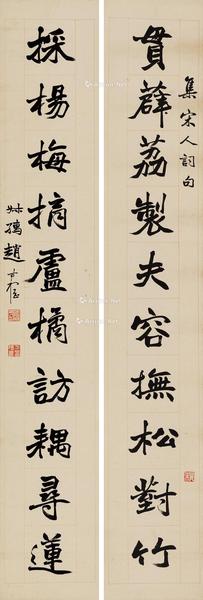 集宋人詞句
貫薜荔製夫容撫松對竹
採楊梅摘盧橘訪藕尋蓮
趙